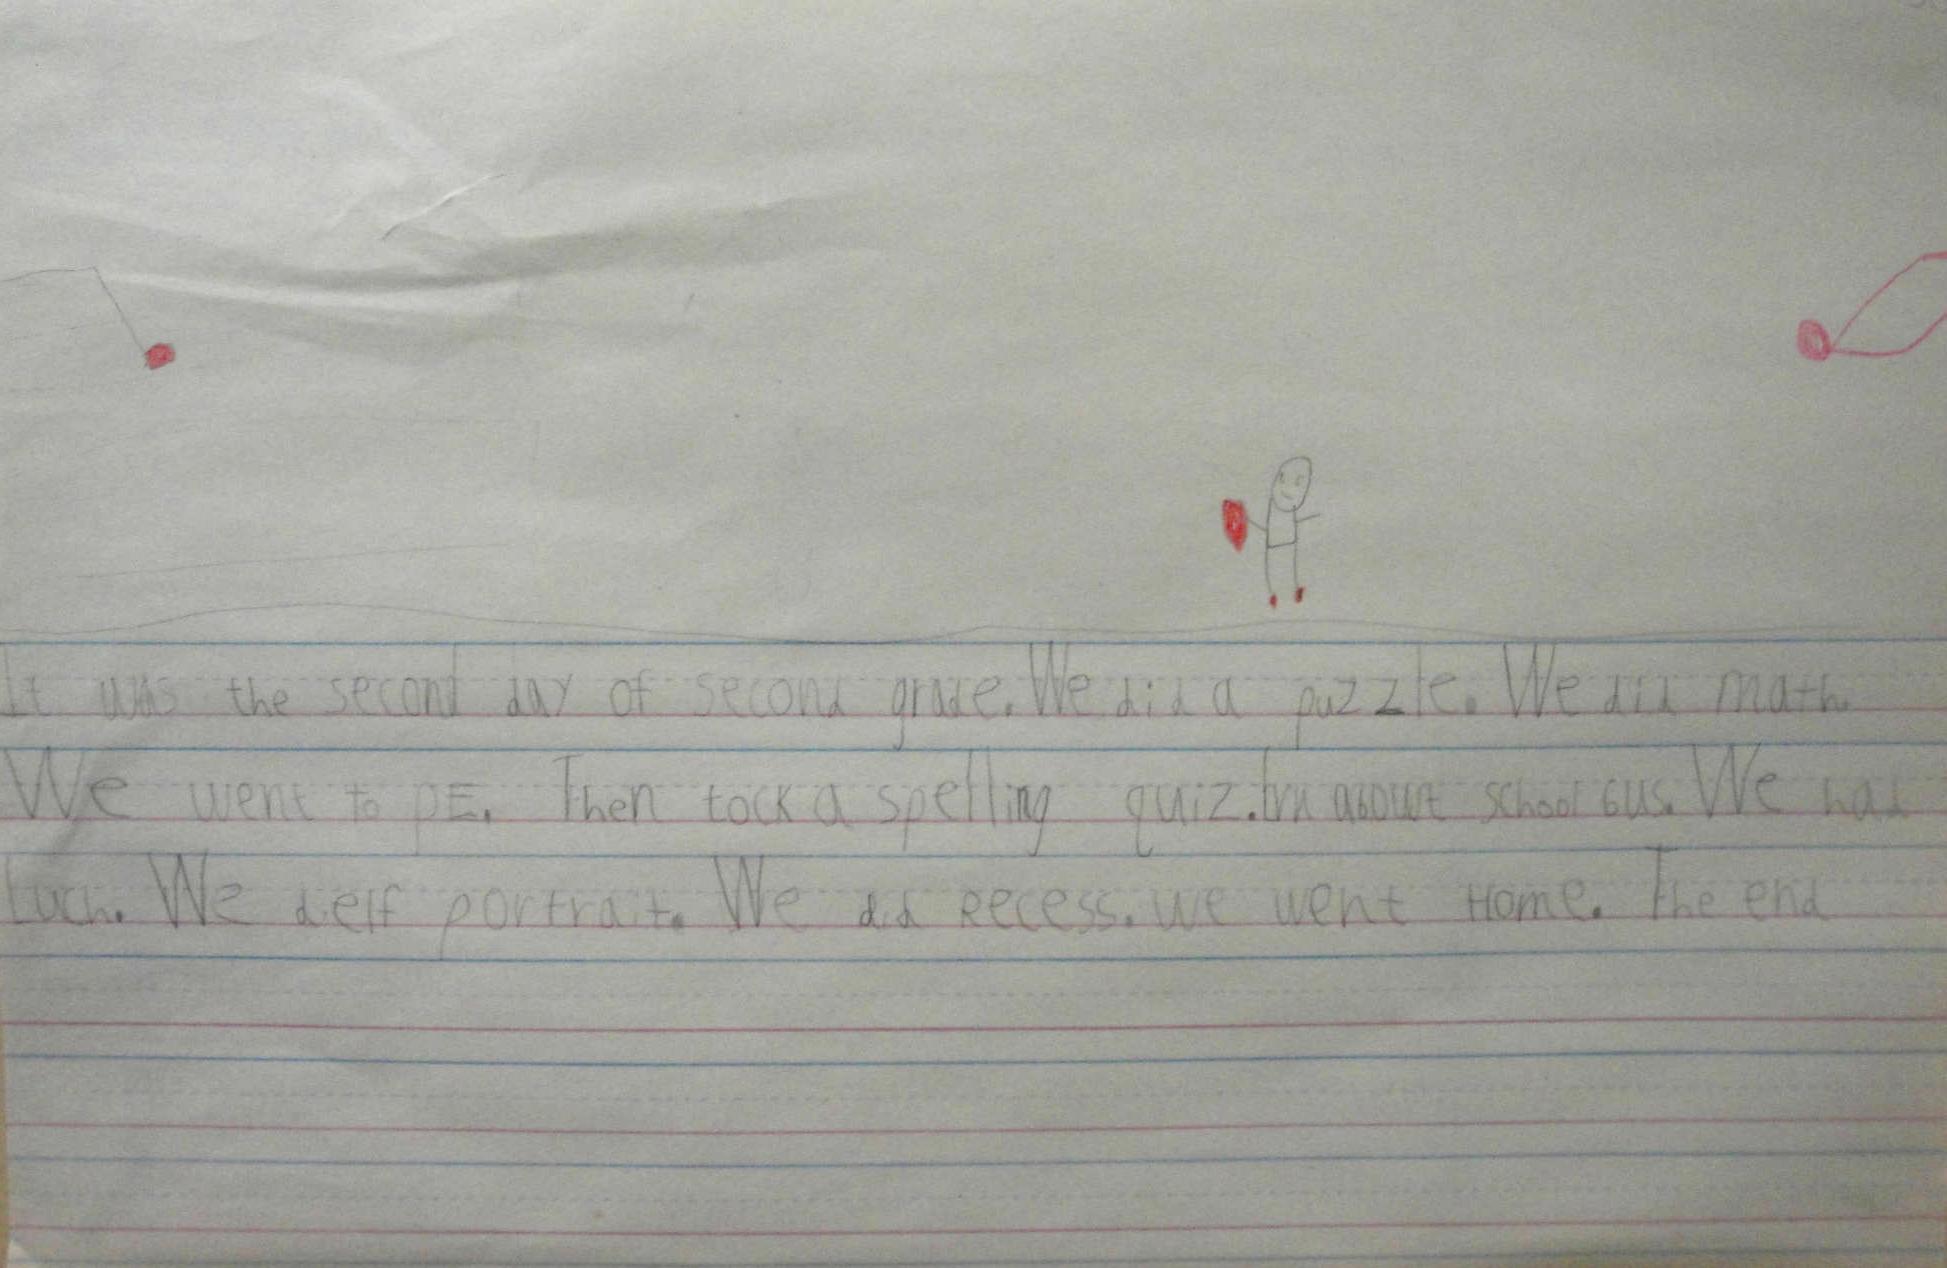 It was the second day of second grade. We did a puzzle. We did math.
We went to PE. Then tock a spelling quiz. about school bus. We had
Luch. We delf portrait. We did Recess. we went Home. The end